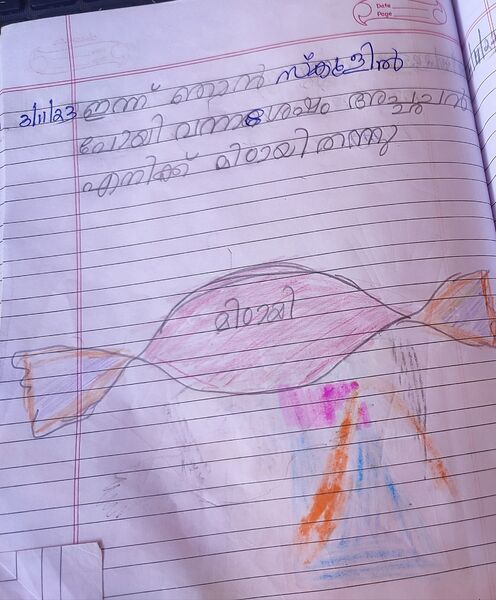 Date
Page
3/11/23 ഇന്ന് ഞാൻ സ്കൂളിൽ
പോയി വന്നശേഷം അച്ചച്ചൻ
എനിക്ക് മിഠായി തന്നു
മിഠായി